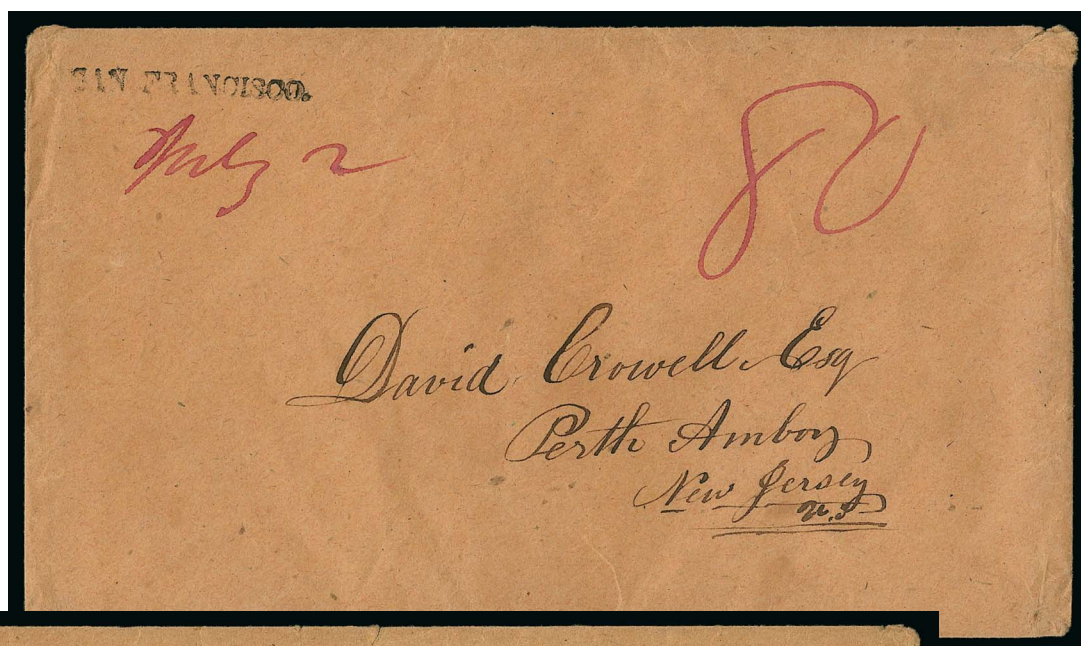 SAN FRANCISCO.
July 2
80
David Crowell Esq
Perth Amboy
New Jersey
U.S